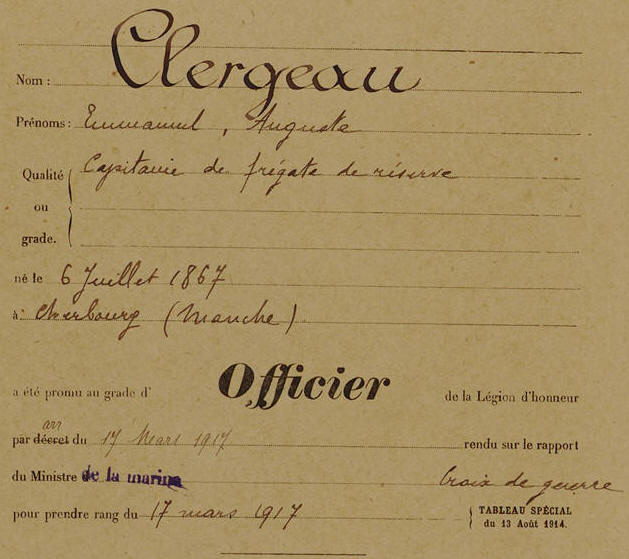 Nom : Clergeau
Prénoms : Emmanuel, Auguste
Qualité ou grade. Capitaine de frégate de réserve
né le 6 Juillet 1867
à : Cherbourg (Manche)
a été promu au grade d' Officier de la Légion d'honneur
arr
par décret du 17 Mars 1917 rendu sur le rapport
du Ministre de la marine Croix de guerre
pour prendre rang du 17 mars 1917 TABLEAU SPÉCIAL
du 13 Août 1914.